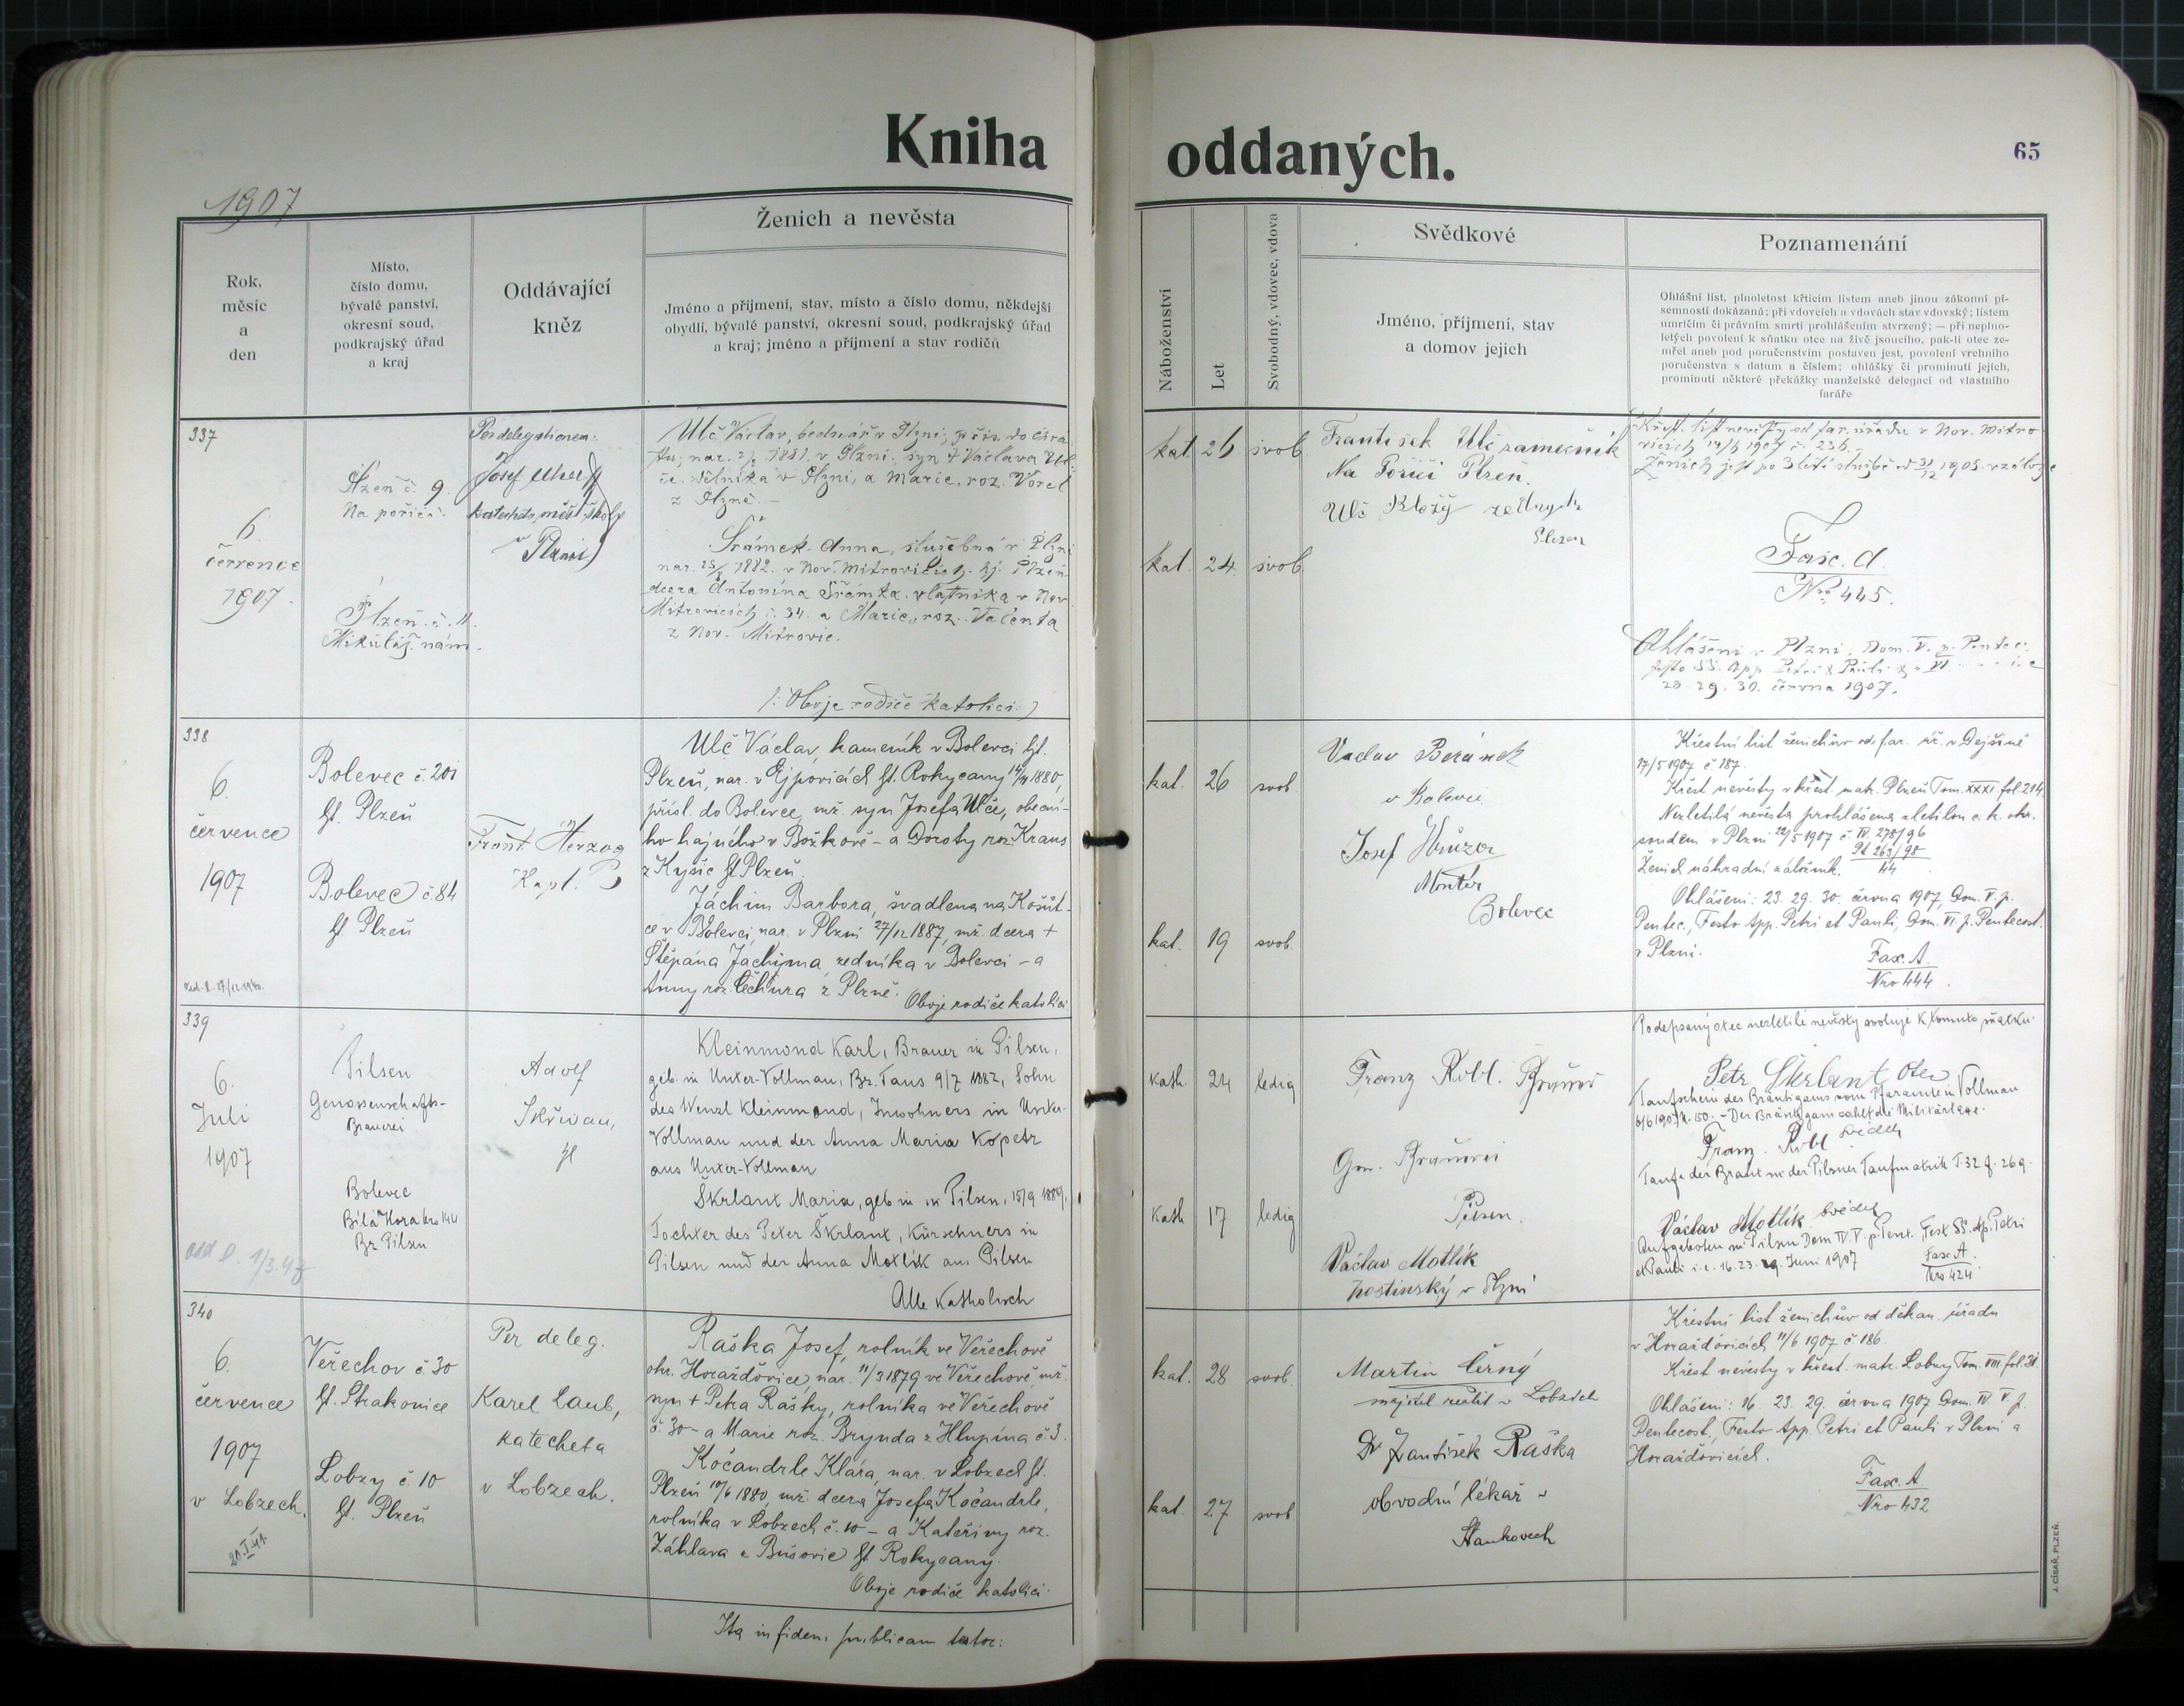 Kniha oddaných.
65
1907
Rok,
měsíc
a
den
Místo,
číslo domu,
bývalé panství,
okresní soud,
podkrajský úřad
a kraj
Oddávající
kněz
Ženich a nevěsta
Jméno a příjmení, stav, místo a číslo domu, někdejší
obydlí, bývalé panství, okresní soud, podkrajský úřad
a kraj; jméno a příjmení a stav rodičů
Náboženství
Let
Svobodný, vdovec, vdova
Svědkové
Jméno, příjmení, stav
a domov jejich
Poznamenání
Ohlášní list, plnoletost křticím listem aneb jinou zákonní pí-
semností dokázaná; při vdovcích a vdovách stav vdovský; listem
umrlčím či právním smrti prohlášením stvrzený; — při neplno-
letých povolení k sňatku otce na živě jsoucího, pak-li otec ze-
mřel aneb pod poručenstvím postaven jest, povolení vrchního
poručenstva s datum a číslem; ohlášky či prominutí jejich,
prominutí některé překážky manželské delegací od vlastního
faráře
337
6.
července
1907.
Plzeň č. 9.
Na poříčí.
Plzeň. č. 11.
Mikuláš. nám.
Per delegationem:
Josef
katecheta měšť. školy
v Plzni)
Ulč Václav, bednář v Plzni;
nar. 1881. v Plzni; syn † Václava Ul-
če, dělníka v Plzni, a Marie, roz. Vorel
z Plzně. —
Šrámek Anna, služebná v Plzni
nar. 25/ 1882. v Nov. Mitrovicích. hj. Plzeň
dcera Antonína Šrámka, v Nov.
Mitrovicích č. 34. a Marie, roz. Valenta
z Nov. Mitrovic.
/: Oboje rodiče katolíci :)
kat 26 svob.
kat. 24 svob.
František Ulč zámečník
Na Poříčí Plzeň.
Ulč Blažej
Plzeň
Křest. list nevěsty od far. úřadu v Nov. Mitro-
vicích 14/6 1907 č. 236.
Ženich jest po 3 leté službě od 31/12 1905. v záloze
Fasc. A.
Nro 445.
Ohlášeni v Plzni, Dom. V. p. Pentec.
festo SS. App. Petri & Pauli &
23. 29. 30. června 1907.
338
6.
července
1907
Bolevec č. 201
ht. Plzeň
Bolevec č. 84
ht. Plzeň
Frant. Herzog
Kapl.
Ulč Václav, kameník v Bolevci hjt.
Plzeň, nar. v Ejpovicích ht. Rokycany 1880,
přísl. do Bolevce, mž. syn Josefa Ulče, obecní-
ho hajného v Božkově – a Doroty roz. Kraus
z Kyšic ht Plzeň.
Jáchim Barbora, švadlena na Košút-
ce v Bolevci, nar. v Plzni 27/12 1887, mž. dcera †
Štěpána Jáchima, zedníka v Bolevci – a
Anny roz. Čechura z Plzně. Oboje rodiče katolíci
kat. 26 svob.
kat. 19 svob.
Vaclav Beránek
v Bolevci
Josef Hrůza
Montér
Bolevec
Křestní list ženichův od far. úř. v Dejšině
17/5 1907 č 187.
Křest nevěsty v křest. matr. Plzeň Tom. XXXI fol. 214.
Nezletilá nevěsta prohlášena zletilou c. k. okr.
soudem v Plzni 22/5 1907 č IV 278/96
Pl 263/98
44
Ženich náhradní záložník.
Ohlášeni: 23. 29. 30. června 1907, Dom. V. p.
Pentec., Festo App. Petri et Pauli, Dom. VI. p. Pentecost.
v Plzni.
Fasc. A.
Nro 444.
339
6.
Juli
1907
Pilsen
Genossenschafts-
Brauerei
Bolevec
Bílá Hora Nro 144
Bz Pilsen
Adolf
Skřivan,
Kleinmond Karl, Brauer in Pilsen,
geb. in Unter-Vollmau, Bz. Taus 9/7 1882, Sohn
des Wenzl Kleinmond, Inwohners in Unter-
Vollmau und der Anna Maria Kopetz
aus Unter-Vollmau
Škrlant Maria, geb. in Pilsen, 15/9 1889,
Tochter des Peter Škrlant, Kürschners in
Pilsen und der Anna Motlík aus Pilsen
Alle katholisch
kath. 24 ledig
kath 17 ledig
Franz Robl.
Gen.
Pilsen.
Václav Motlík
hostinský v Plzni
Podepsaný otec nezletilé nevěsty svoluje k tomuto sňatku.
Petr Škrlant otec
Taufschein des Bräutigams vom Pfarramte in Vollmau
6/6 1907 N. 150. – Der Bräutigam zahlt die Militärtaxe.
Franz Robl svědek
Taufe der Braut in der Pilsner Taufmatrik T. 32 f. 269.
Václav Motlík svědek
Aufgeboten in Pilsen Dom IV. V. p. Pent. Fest SS. Ap. Petri
et Pauli i. e. 16. 23. 29. Juni 1907
Fasc A.
Nro 424
340
6.
července
1907
v Lobzech.
Veřechov č. 30
ht. Strakonice
Lobzy č. 10
ht. Plzeň
Per deleg.
Karel Laub,
katecheta
v Lobzech.
Raška Josef, rolník ve Veřechově
okr. Horažďovice, nar. 11/3 1879 ve Veřechově, mž.
syn † Petra Rašky, rolníka ve Veřechově
č. 30 – a Marie roz. Brynda z Hlupína č. 3.
Kočandrle Klára, nar. v Lobzech ht.
Plzeň 10/6 1880, mž. dcera Josefa Kočandrle,
rolníka v Lobzech č. 10 – a Kateřiny roz.
Záhlava z Bušovic ht Rokycany.
Oboje rodiče katolíci.
kat. 28 svob.
kat. 27 svob
Martin Černý
majitel realit v Lobzích
Dr František Raška
obvodní lékař v
Staňkovech
Křestní list ženichův od děkan. úřadu
v Horažďovicích 11/6 1907 č 186.
Křest nevěsty v křest. matr. Lobzy Tom. VIII fol. 31.
Ohlášeni: 16. 23. 29. června 1907 Dom. IV V p.
Pentecost., Festo App. Petri et Pauli v Plzni a
Horažďovicích.
Fasc. A
Nro 432
Ita in fidem publicam testor:
J. CÍSAŘ, PLZEŇ.